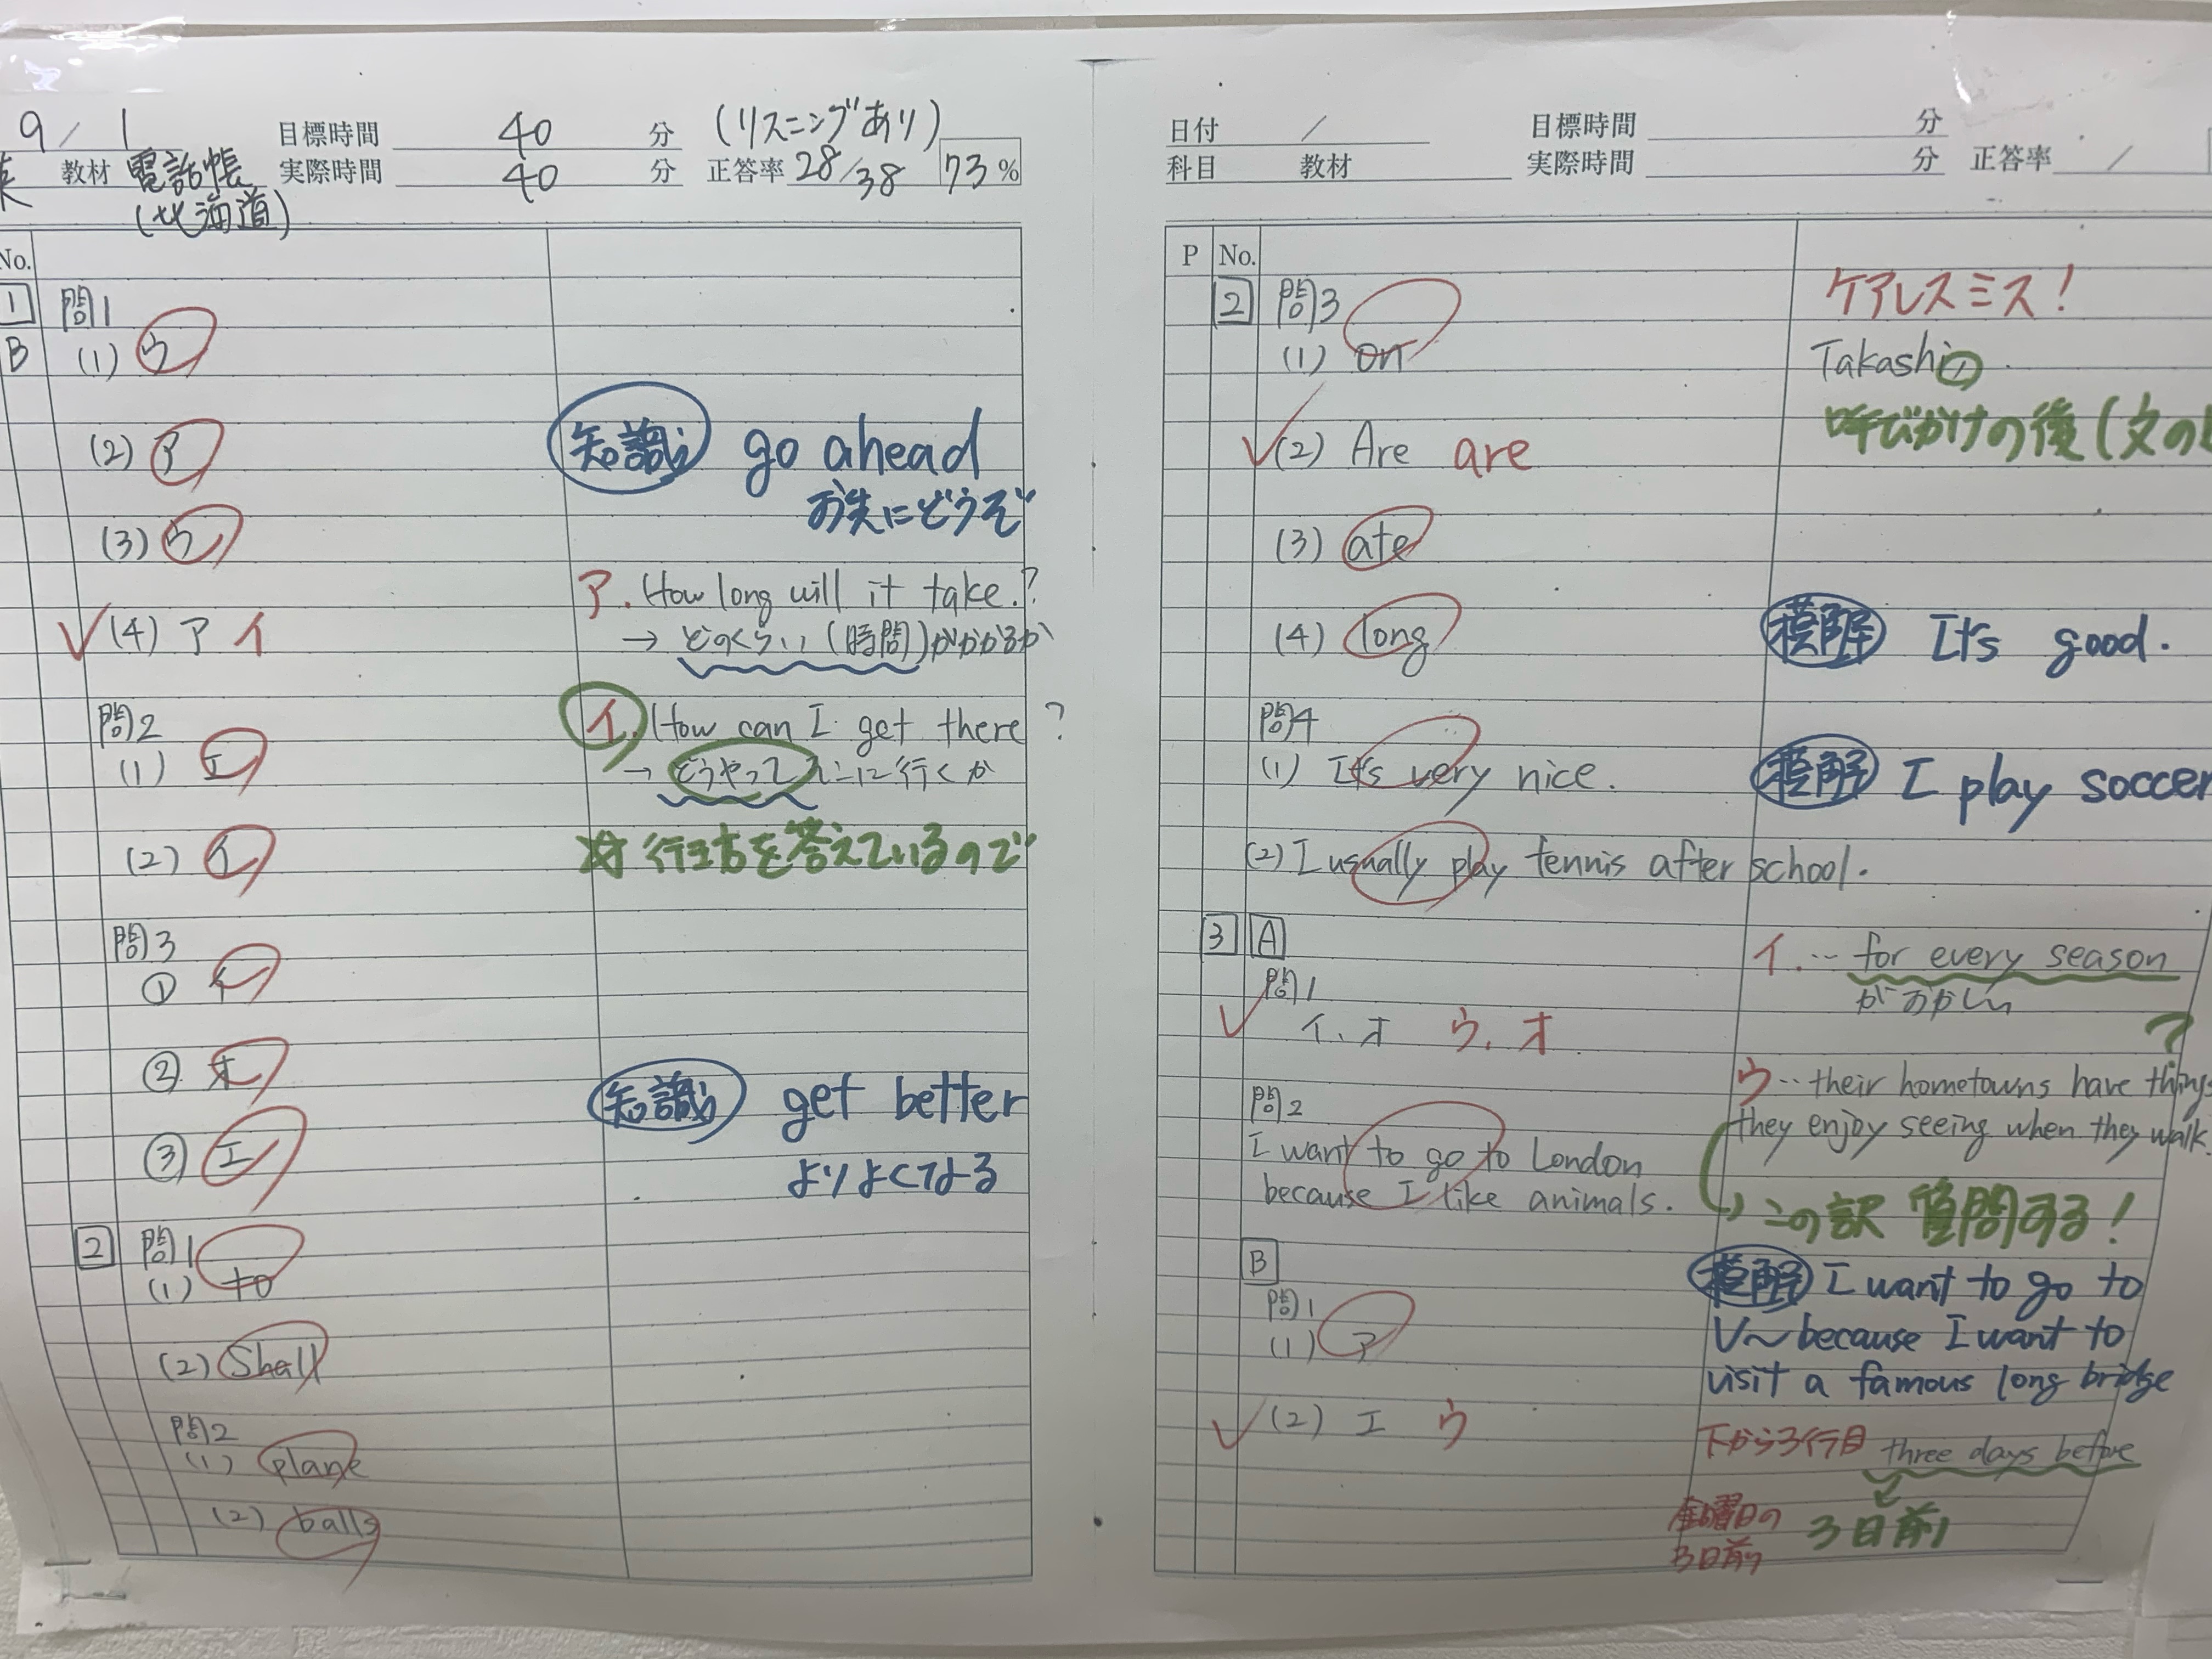 9/1
目標時間 40 分 (リスニングあり)
教材 電話帳 実際時間 40 分 正答率 28/38 73%
(北海道)
No.
1 問1
B (1) ウ
(2) ア
知識 go ahead
お先にどうぞ
(3) ウ
ア. How long will it take.?
(4) ア イ
→ どのくらい(時間)がかかるか
問2
イ. How can I get there?
(1) エ
→ どうやってそこに行くか
(2) イ
行き方を答えているので
問3
① イ
② オ
知識 get better
③ エ
よりよくなる
2 問1
(1) to
(2) Shall
問2
(1) plane
(2) balls
日付 / 目標時間 分
科目 教材 実際時間 分 正答率 /
P No.
2 問3
ケアレスミス!
(1) on
Takashi,
呼びかけの後(文の
(2) Are are
(3) ate
(4) long
模解 It's good.
問4
(1) It's very nice.
模解 I play soccer
(2) I usually play tennis after school.
3 A
イ.… for every season
がおかしい
問1
イ、オ ウ、オ
?
ウ… their hometowns have things
they enjoy seeing when they walk.
問2
I want to go to London
because I like animals.
この訳 質問する!
B
模解 I want to go to
V~ because I want to
visit a famous long bridge
問1
(1) ア
(2) エ ウ
下から3行目 three days before
金曜日の
3日前
3日前